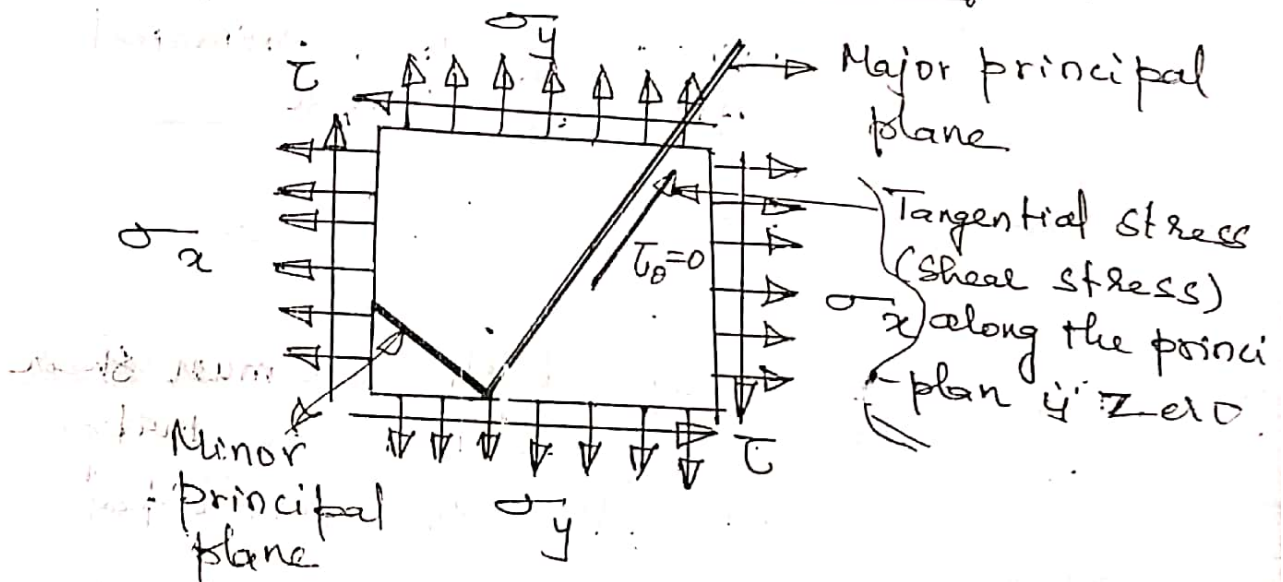 σy
τ
Major principal
plane
σx
τθ=0
Tangential stress
(Shear stress)
σx
along the princi
plan is Zero
τ
Minor
principal
plane
σy